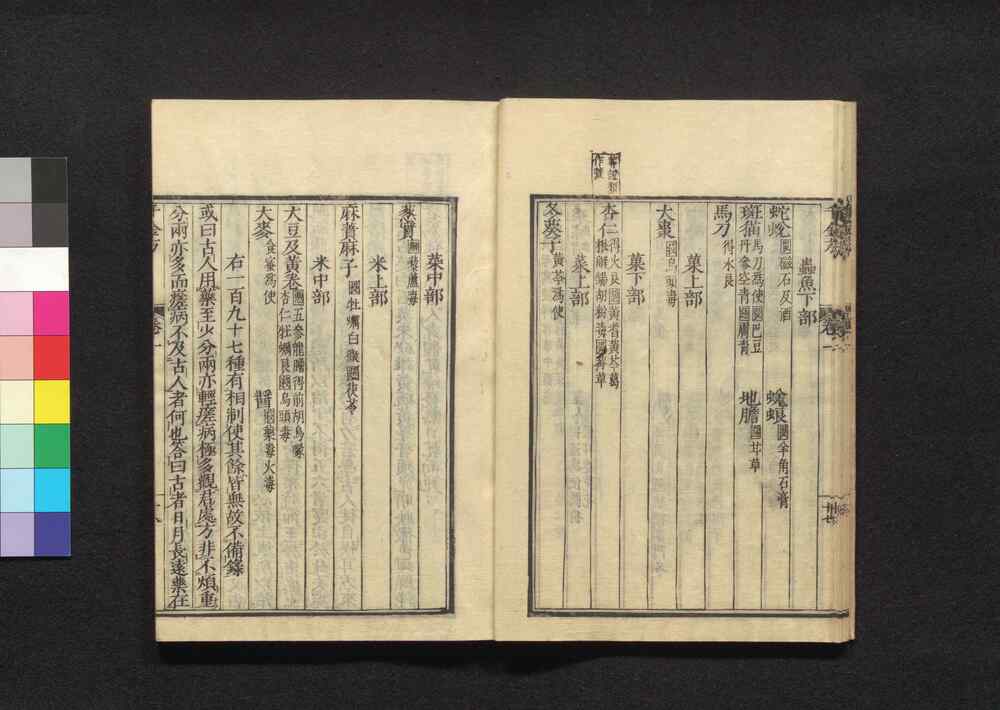 蟲魚下部
蛇蛻畏磁石及酒　蜣蜋畏羊角石膏
斑猫馬刀為使畏巴豆丹參空青惡膚青　地膽惡甘草
馬刀得水良
菓上部
大棗殺烏頭毒
菓下部
杏仁得火良惡黃耆黃芩葛根解錫胡粉毒畏蘘草
菜上部
冬葵子黃芩為使
菜中部
葱實解藜蘆毒
米上部
麻蕡麻子畏牡蠣白薇惡茯苓
米中部
大豆及黃卷惡五參龍膽得前胡烏喙杏仁牡蠣良殺烏頭毒
大麥食蜜為使　醬殺藥毒火毒
右一百九十七種有相制使其餘皆無故不備錄
或曰古人用藥至少分兩亦輕瘥病極多觀君處方非不煩重
分兩亦多而瘥病不及古人者何也答曰古者日月長遠藥在